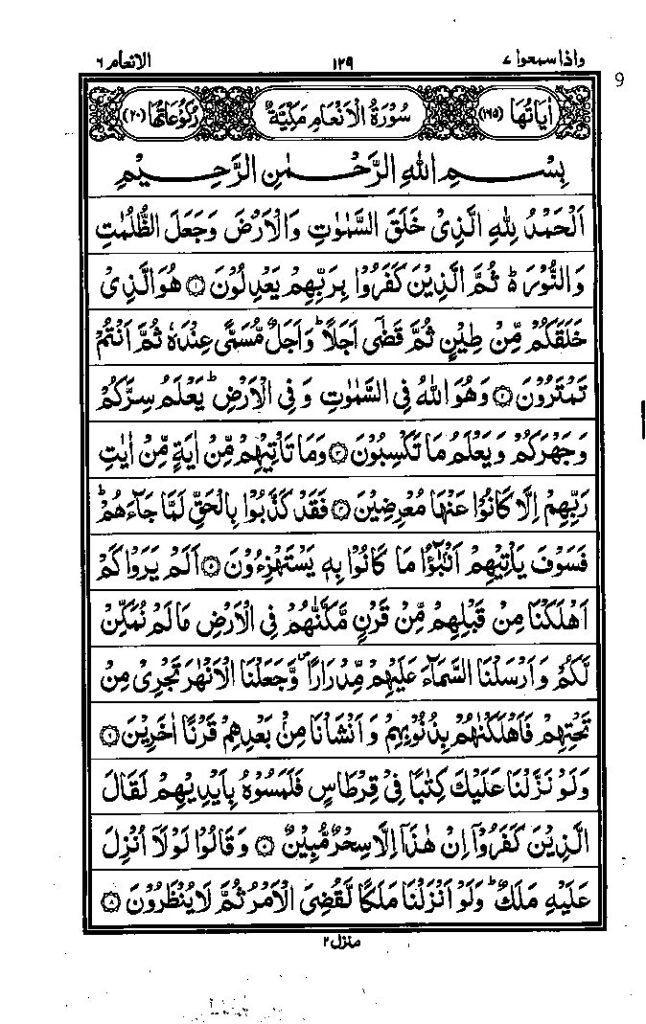 واذا سمعوا ٧
١٢٩
الانعام ٦
9
اٰيَاتُهَا (١٦٥)
سُوْرَةُ الْاَنْعَامِ مَكِّيَّةٌ
رُكُوْعَاتُهَا (٢٠)
بِسْمِ اللّٰهِ الرَّحْمٰنِ الرَّحِيْمِ
اَلْحَمْدُ لِلّٰهِ الَّذِىْ خَلَقَ السَّمٰوٰتِ وَالْاَرْضَ وَجَعَلَ الظُّلُمٰتِ
وَالنُّوْرَ ؕ۬ ثُمَّ الَّذِيْنَ كَفَرُوْا بِرَبِّهِمْ يَعْدِلُوْنَ ۝١ هُوَ الَّذِىْ
خَلَقَكُمْ مِّنْ طِيْنٍ ثُمَّ قَضٰٓى اَجَلًا ؕ وَاَجَلٌ مُّسَمًّى عِنْدَهٗ ثُمَّ اَنْتُمْ
تَمْتَرُوْنَ ۝٢ وَهُوَ اللّٰهُ فِى السَّمٰوٰتِ وَفِى الْاَرْضِ ؕ يَعْلَمُ سِرَّكُمْ
وَجَهْرَكُمْ وَيَعْلَمُ مَا تَكْسِبُوْنَ ۝٣ وَمَا تَاْتِيْهِمْ مِّنْ اٰيَةٍ مِّنْ اٰيٰتِ
رَبِّهِمْ اِلَّا كَانُوْا عَنْهَا مُعْرِضِيْنَ ۝٤ فَقَدْ كَذَّبُوْا بِالْحَقِّ لَمَّا جَآءَهُمْ ؕ
فَسَوْفَ يَاْتِيْهِمْ اَنْۢبٰٓؤُا مَا كَانُوْا بِهٖ يَسْتَهْزِءُوْنَ ۝٥ اَلَمْ يَرَوْا كَمْ
اَهْلَكْنَا مِنْ قَبْلِهِمْ مِّنْ قَرْنٍ مَّكَّنّٰهُمْ فِى الْاَرْضِ مَا لَمْ نُمَكِّنْ
لَّكُمْ وَاَرْسَلْنَا السَّمَآءَ عَلَيْهِمْ مِّدْرَارًا ۪ وَّجَعَلْنَا الْاَنْهٰرَ تَجْرِىْ مِنْ
تَحْتِهِمْ فَاَهْلَكْنٰهُمْ بِذُنُوْبِهِمْ وَاَنْشَاْنَا مِنْۢ بَعْدِهِمْ قَرْنًا اٰخَرِيْنَ ۝٦
وَلَوْ نَزَّلْنَا عَلَيْكَ كِتٰبًا فِىْ قِرْطَاسٍ فَلَمَسُوْهُ بِاَيْدِيْهِمْ لَقَالَ
الَّذِيْنَ كَفَرُوْٓا اِنْ هٰذَآ اِلَّا سِحْرٌ مُّبِيْنٌ ۝٧ وَقَالُوْا لَوْلَآ اُنْزِلَ
عَلَيْهِ مَلَكٌ ؕ وَلَوْ اَنْزَلْنَا مَلَكًا لَّقُضِىَ الْاَمْرُ ثُمَّ لَا يُنْظَرُوْنَ ۝٨
منزل ٢